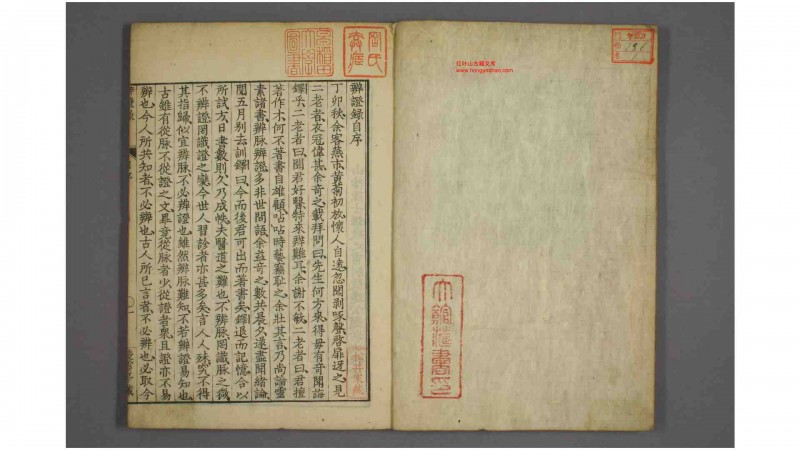 辨證錄自序
丁卯秋余客燕市黃菊初放懷人自遠忽聞剥啄聲啓扉迓之見
二老者衣冠偉甚余奇之載拜問曰先生何方來得毋有奇聞誨
鐸乎二老者曰聞君好醫特來辨難耳余謝不敏二老者曰君擅
著作才何不著書自雄顧呫呫時藝竊耻之余壯其言乃尚論靈
素諸書辨脉辨證多非世間語余益奇之數共晨夕遂盡聞緒論
閱五月别去訓鐸曰今而後君可出而著書矣鐸退而記憶合以
所試方日書數則久乃成帙夫醫道之難也不辨脉罔識脉之微
不辨證罔識證之變今世人習診者亦甚多矣言人人殊究不得
其指歸似宜辨脉不必辨證也雖然辨脉難知不若辨證易知也
古雖有從脉不從證之文畢竟從脉者少從證者衆且證亦不易
辨也今人所共知者不必辨也古人所已言者不必辨也必取今
紅叶山古籍文库
www.hongyeshan.com